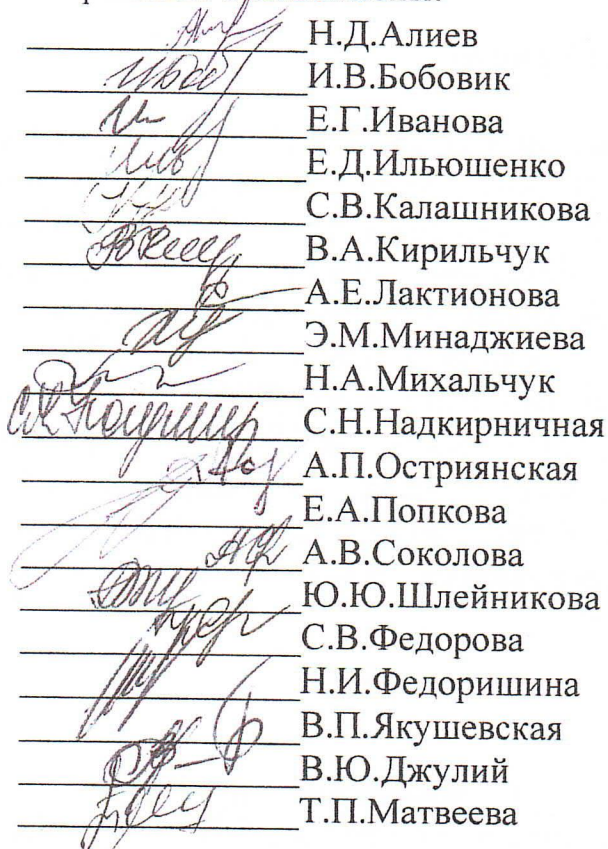 Н.Д.Алиев
И.В.Бобовик
Е.Г.Иванова
Е.Д.Ильюшенко
С.В.Калашникова
В.А.Кирильчук
А.Е.Лактионова
Э.М.Минаджиева
Н.А.Михальчук
С.Н.Надкирничная
А.П.Остриянская
Е.А.Попкова
А.В.Соколова
Ю.Ю.Шлейникова
С.В.Федорова
Н.И.Федоришина
В.П.Якушевская
В.Ю.Джулий
Т.П.Матвеева